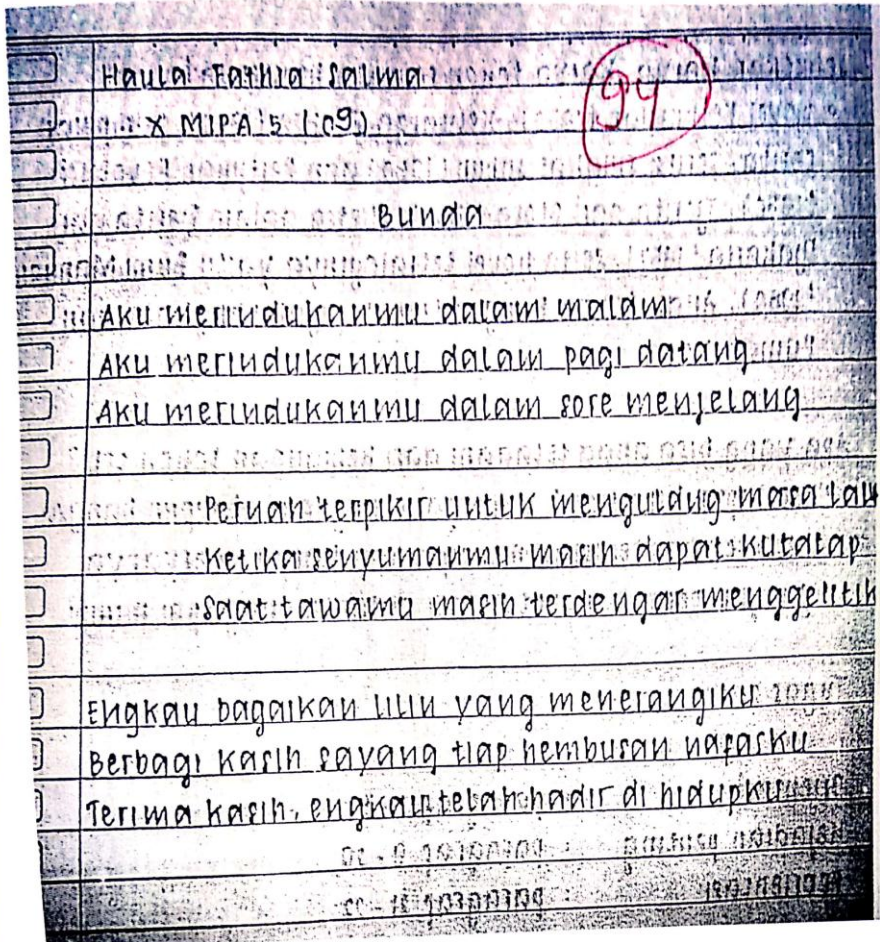 Haula Fathia Salma
X MIPA 5 (09)
94
Bunda
Aku merindukanmu dalam malam
Aku merindukanmu dalam pagi datang
Aku merindukanmu dalam sore menjelang
Pernah terpikir untuk mengulang masa lalu
Ketika senyumanmu masih dapat kutatap
Saat tawamu masih terdengar menggelitik
Engkau bagaikan lilin yang menerangiku
Berbagi kasih sayang tiap hembusan nafasku
Terima kasih, engkau telah hadir di hidupku